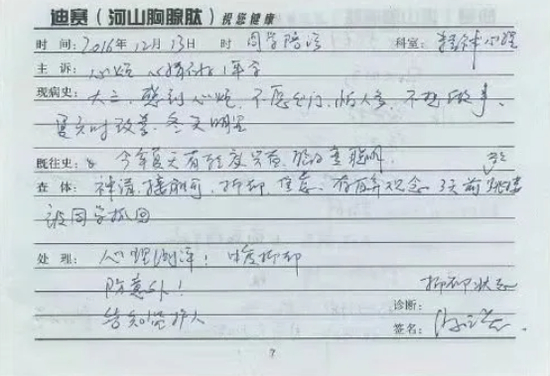 迪赛(河山胸腺肽)祝您健康
时 间:2016年12月13日 时 同学陪诊 科室:精神心理
主 诉:心烦 心情低落1年余
现病史:大三,感到心烦,不愿出门,怕人多,不想做事,
夏天时改善,冬天明显
既往史:今年夏天有轻度兴奋
查 体:神清,接触可,抑郁,焦虑,存自弃观念 3天前跳楼
被同学抓回
处 理:心理测评:中度抑郁
防意外!
抑郁状态
告知监护人
诊断:
签名: